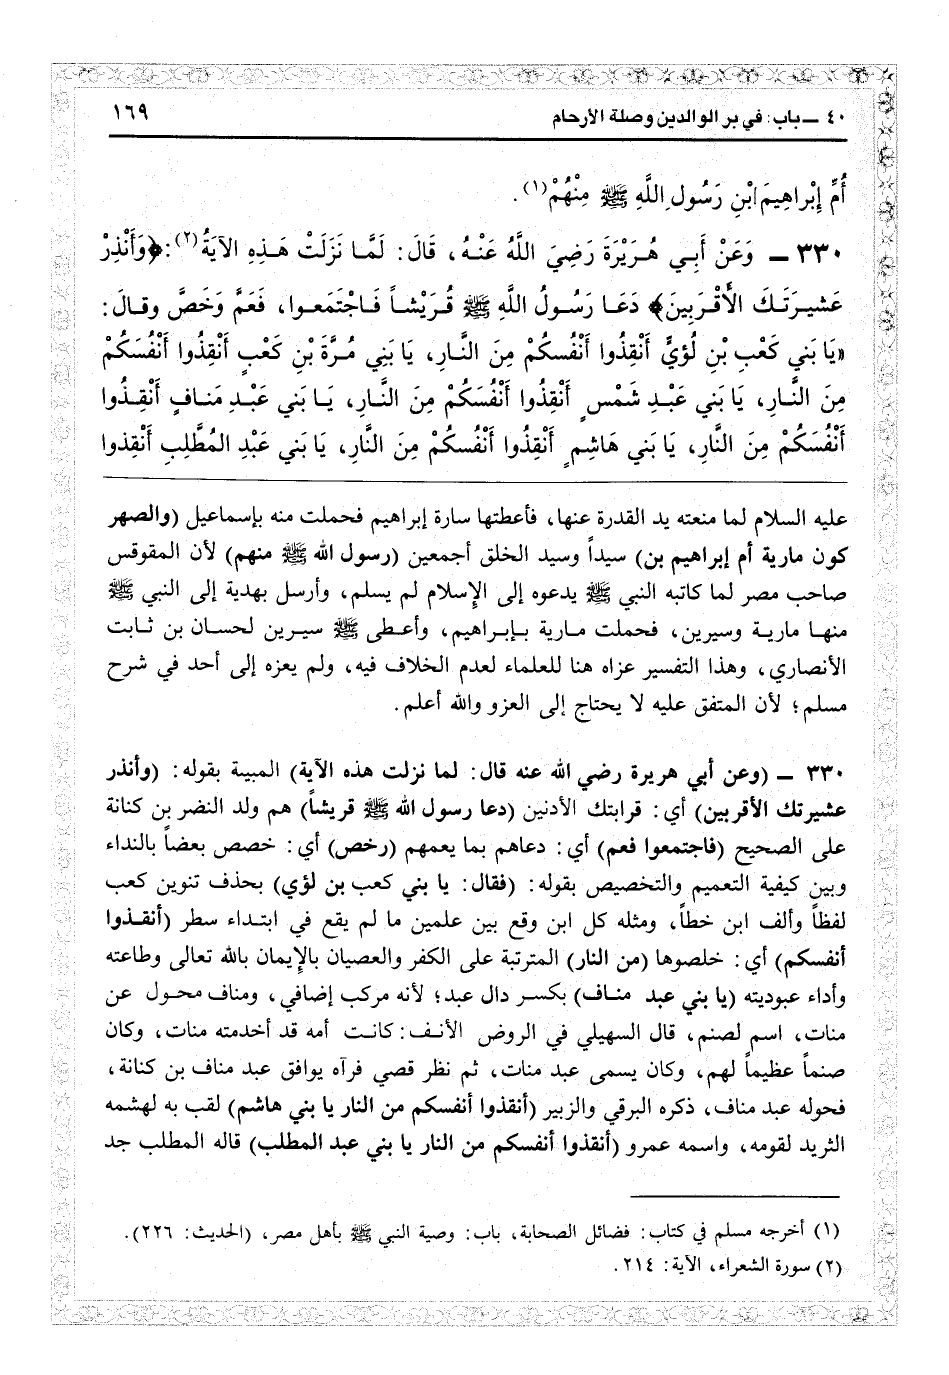 ٤٠ ــ باب: في بر الوالدين وصلة الأرحام
١٦٩
أُمِّ إِبْرَاهِيمَ ابْنِ رَسُولِ اللَّهِ ﷺ مِنْهُمْ(١).
٣٣٠ ــ وَعَنْ أَبِي هُرَيْرَةَ رَضِيَ اللَّهُ عَنْهُ، قَالَ: لَمَّا نَزَلَتْ هَذِهِ الآيَةُ(٢): ﴿وَأَنْذِرْ
عَشِيرَتَكَ الأَقْرَبِينَ﴾ دَعَا رَسُولُ اللَّهِ ﷺ قُرَيْشاً فَاجْتَمَعوا، فَعَمَّ وَخَصَّ وقالَ:
«يَا بَنِي كَعْبِ بْنِ لُؤَيٍّ أَنْقِذُوا أَنْفُسَكُمْ مِنَ النَّارِ، يَا بَنِي مُرَّةَ بْنِ كَعْبٍ أَنْقِذُوا أَنْفُسَكُمْ
مِنَ النَّارِ، يَا بَنِي عَبْدِ شَمْسٍ أَنْقِذُوا أَنْفُسَكُمْ مِنَ النَّارِ، يَا بَنِي عَبْدِ مَنافٍ أَنْقِذُوا
أَنْفُسَكُمْ مِنَ النَّارِ، يَا بَنِي هَاشِمٍ أَنْقِذُوا أَنْفُسكُمْ مِنَ النَّارِ، يَا بَنِي عَبْدِ المُطَّلِبِ أَنْقِذوا
عليه السلام لما منعته يد القدرة عنها، فأعطتها سارة إبراهيم فحملت منه بإسماعيل (والصهر
كون مارية أم إبراهيم بن) سيداً وسيد الخلق أجمعين (رسول الله ﷺ منهم) لأن المقوقس
صاحب مصر لما كاتبه النبي ﷺ يدعوه إلى الإسلام لم يسلم، وأرسل بهدية إلى النبي ﷺ
منها مارية وسيرين، فحملت مارية بإبراهيم، وأعطى ﷺ سيرين لحسان بن ثابت
الأنصاري، وهذا التفسير عزاه هنا للعلماء لعدم الخلاف فيه، ولم يعزه إلى أحد في شرح
مسلم؛ لأن المتفق عليه لا يحتاج إلى العزو والله أعلم.
٣٣٠ ــ (وعن أبي هريرة رضي الله عنه قال: لما نزلت هذه الآية) المبينة بقوله: (وأنذر
عشيرتك الأقربين) أي: قرابتك الأدنين (دعا رسول الله ﷺ قريشاً) هم ولد النضر بن كنانة
على الصحيح (فاجتمعوا فعم) أي: دعاهم بما يعمهم (رخص) أي: خصص بعضاً بالنداء
وبين كيفية التعميم والتخصيص بقوله: (فقال: يا بني كعب بن لؤي) بحذف تنوين كعب
لفظاً وألف ابن خطاً، ومثله كل ابن وقع بين علمين ما لم يقع في ابتداء سطر (أنقذوا
أنفسكم) أي: خلصوها (من النار) المترتبة على الكفر والعصيان بالإيمان بالله تعالى وطاعته
وأداء عبوديته (يا بني عبد مناف) بكسر دال عبد؛ لأنه مركب إضافي، ومناف محول عن
منات، اسم لصنم، قال السهيلي في الروض الأنف: كانت أمه قد أخدمته منات، وكان
صنماً عظيماً لهم، وكان يسمى عبد منات، ثم نظر قصي فرآه يوافق عبد مناف بن كنانة،
فحوله عبد مناف، ذكره البرقي والزبير (أنقذوا أنفسكم من النار يا بني هاشم) لقب به لهشمه
الثريد لقومه، واسمه عمرو (أنقذوا أنفسكم من النار يا بني عبد المطلب) قاله المطلب جد
(١) أخرجه مسلم في كتاب: فضائل الصحابة، باب: وصية النبي ﷺ بأهل مصر، (الحديث: ٢٢٦).
(٢) سورة الشعراء، الآية: ٢١٤.